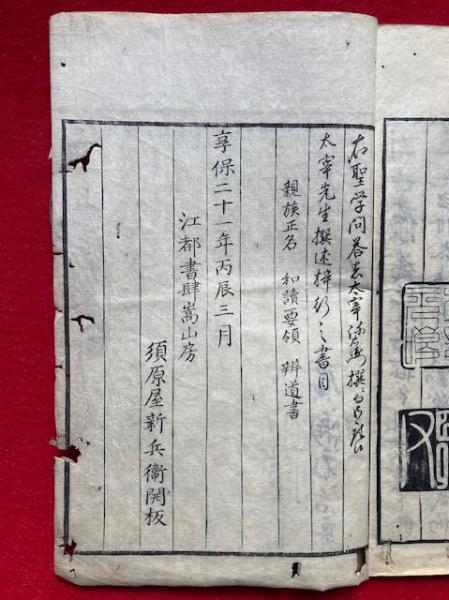 右聖学問答者太宰
太宰先生撰述梓行之書目
親族正名 和讀要領 辨道書
享保二十一年丙辰三月
江都書肆嵩山房
須原屋新兵衞開板